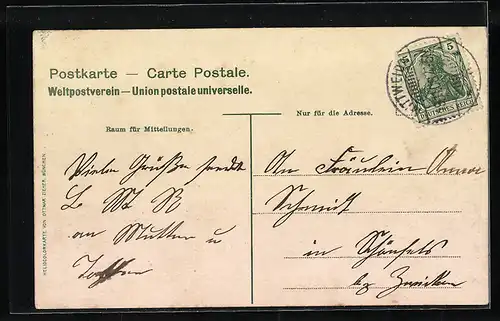 Postkarte — Carte Postale.
Weltpostverein — Union postale universelle.
5
DEUTSCHES REICH
MITTWEIDA
Nur für die Adresse.
Raum für Mitteilungen.
Viele Grüße sendet
an Mutter u
An Fräulein Anna
Schmidt
in Schönfels
bz Zwickau
HELIOCOLORKARTE VON OTTMAR ZIEHER, MÜNCHEN